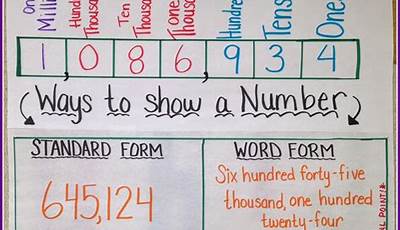 One Milli
Hundr Thousa
Ten Thousa
One Thousa
Hundre
Tens
One
1,086,934
Ways to show a Number
STANDARD FORM
645,124
WORD FORM
Six hundred forty-five
thousand, one hundred
twenty-four
AL POINT!*